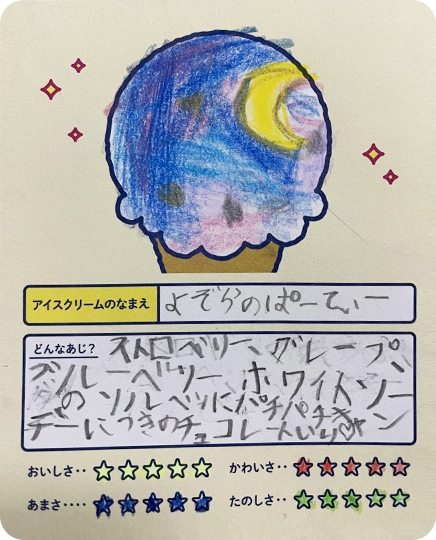 アイスクリームのなまえ
よぞらのぱーてぃー
どんなあじ？
ストロベリー、グレープ、
ブルーベリー ホワイトソー
のソルベッにパチパチキャン
デーにつきのチョコレートいり♡
おいしさ‥ ☆☆☆☆☆
かわいさ‥ ☆☆☆☆☆
あまさ‥‥ ☆☆☆☆☆
たのしさ‥ ☆☆☆☆☆